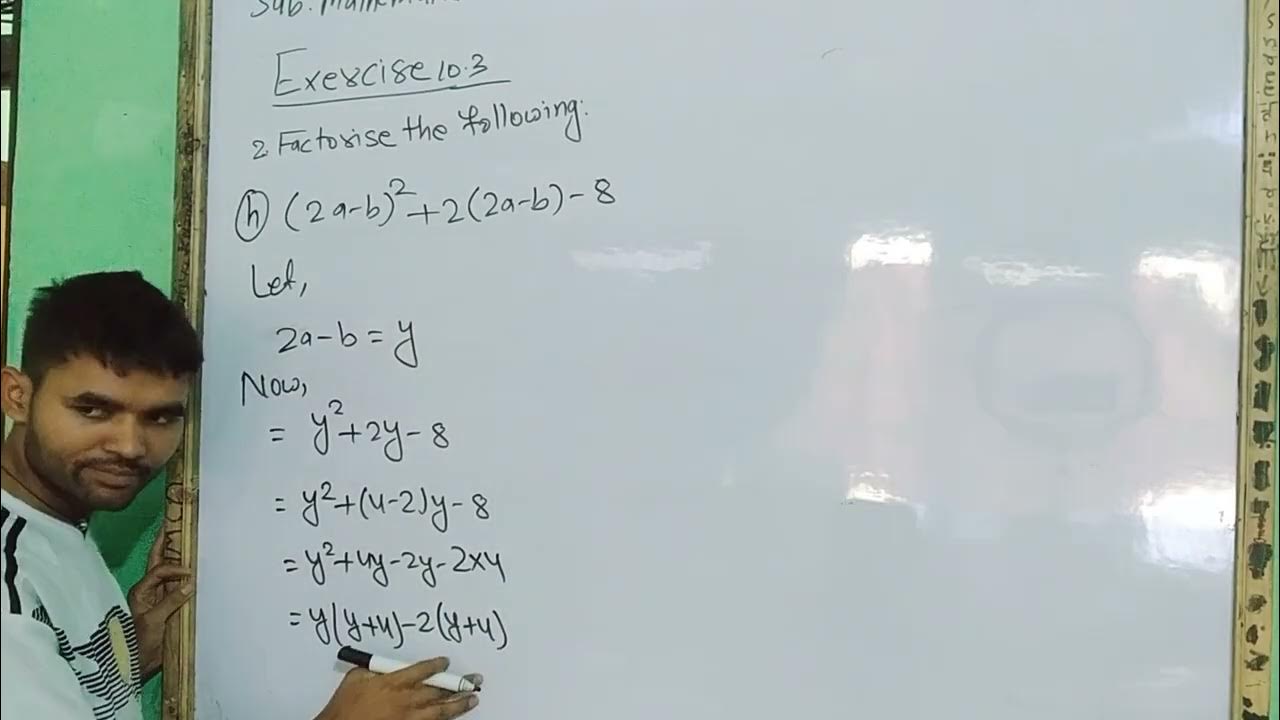 Sub. Mathemati
Exercise 10.3
2 Factorise the following:
(h) (2a-b)²+2(2a-b)-8
Let,
2a-b=y
Now,
= y²+2y-8
= y²+(4-2)y-8
= y²+4y-2y-2×4
= y(y+4)-2(y+4)